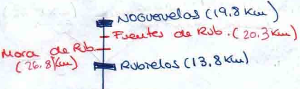 NOGUERUELAS (19,8 Km)
Fuentes de Rub. (20,3 Km)
Mora de Rub.
(26,8 Km)
Rubielos (13,8 Km)